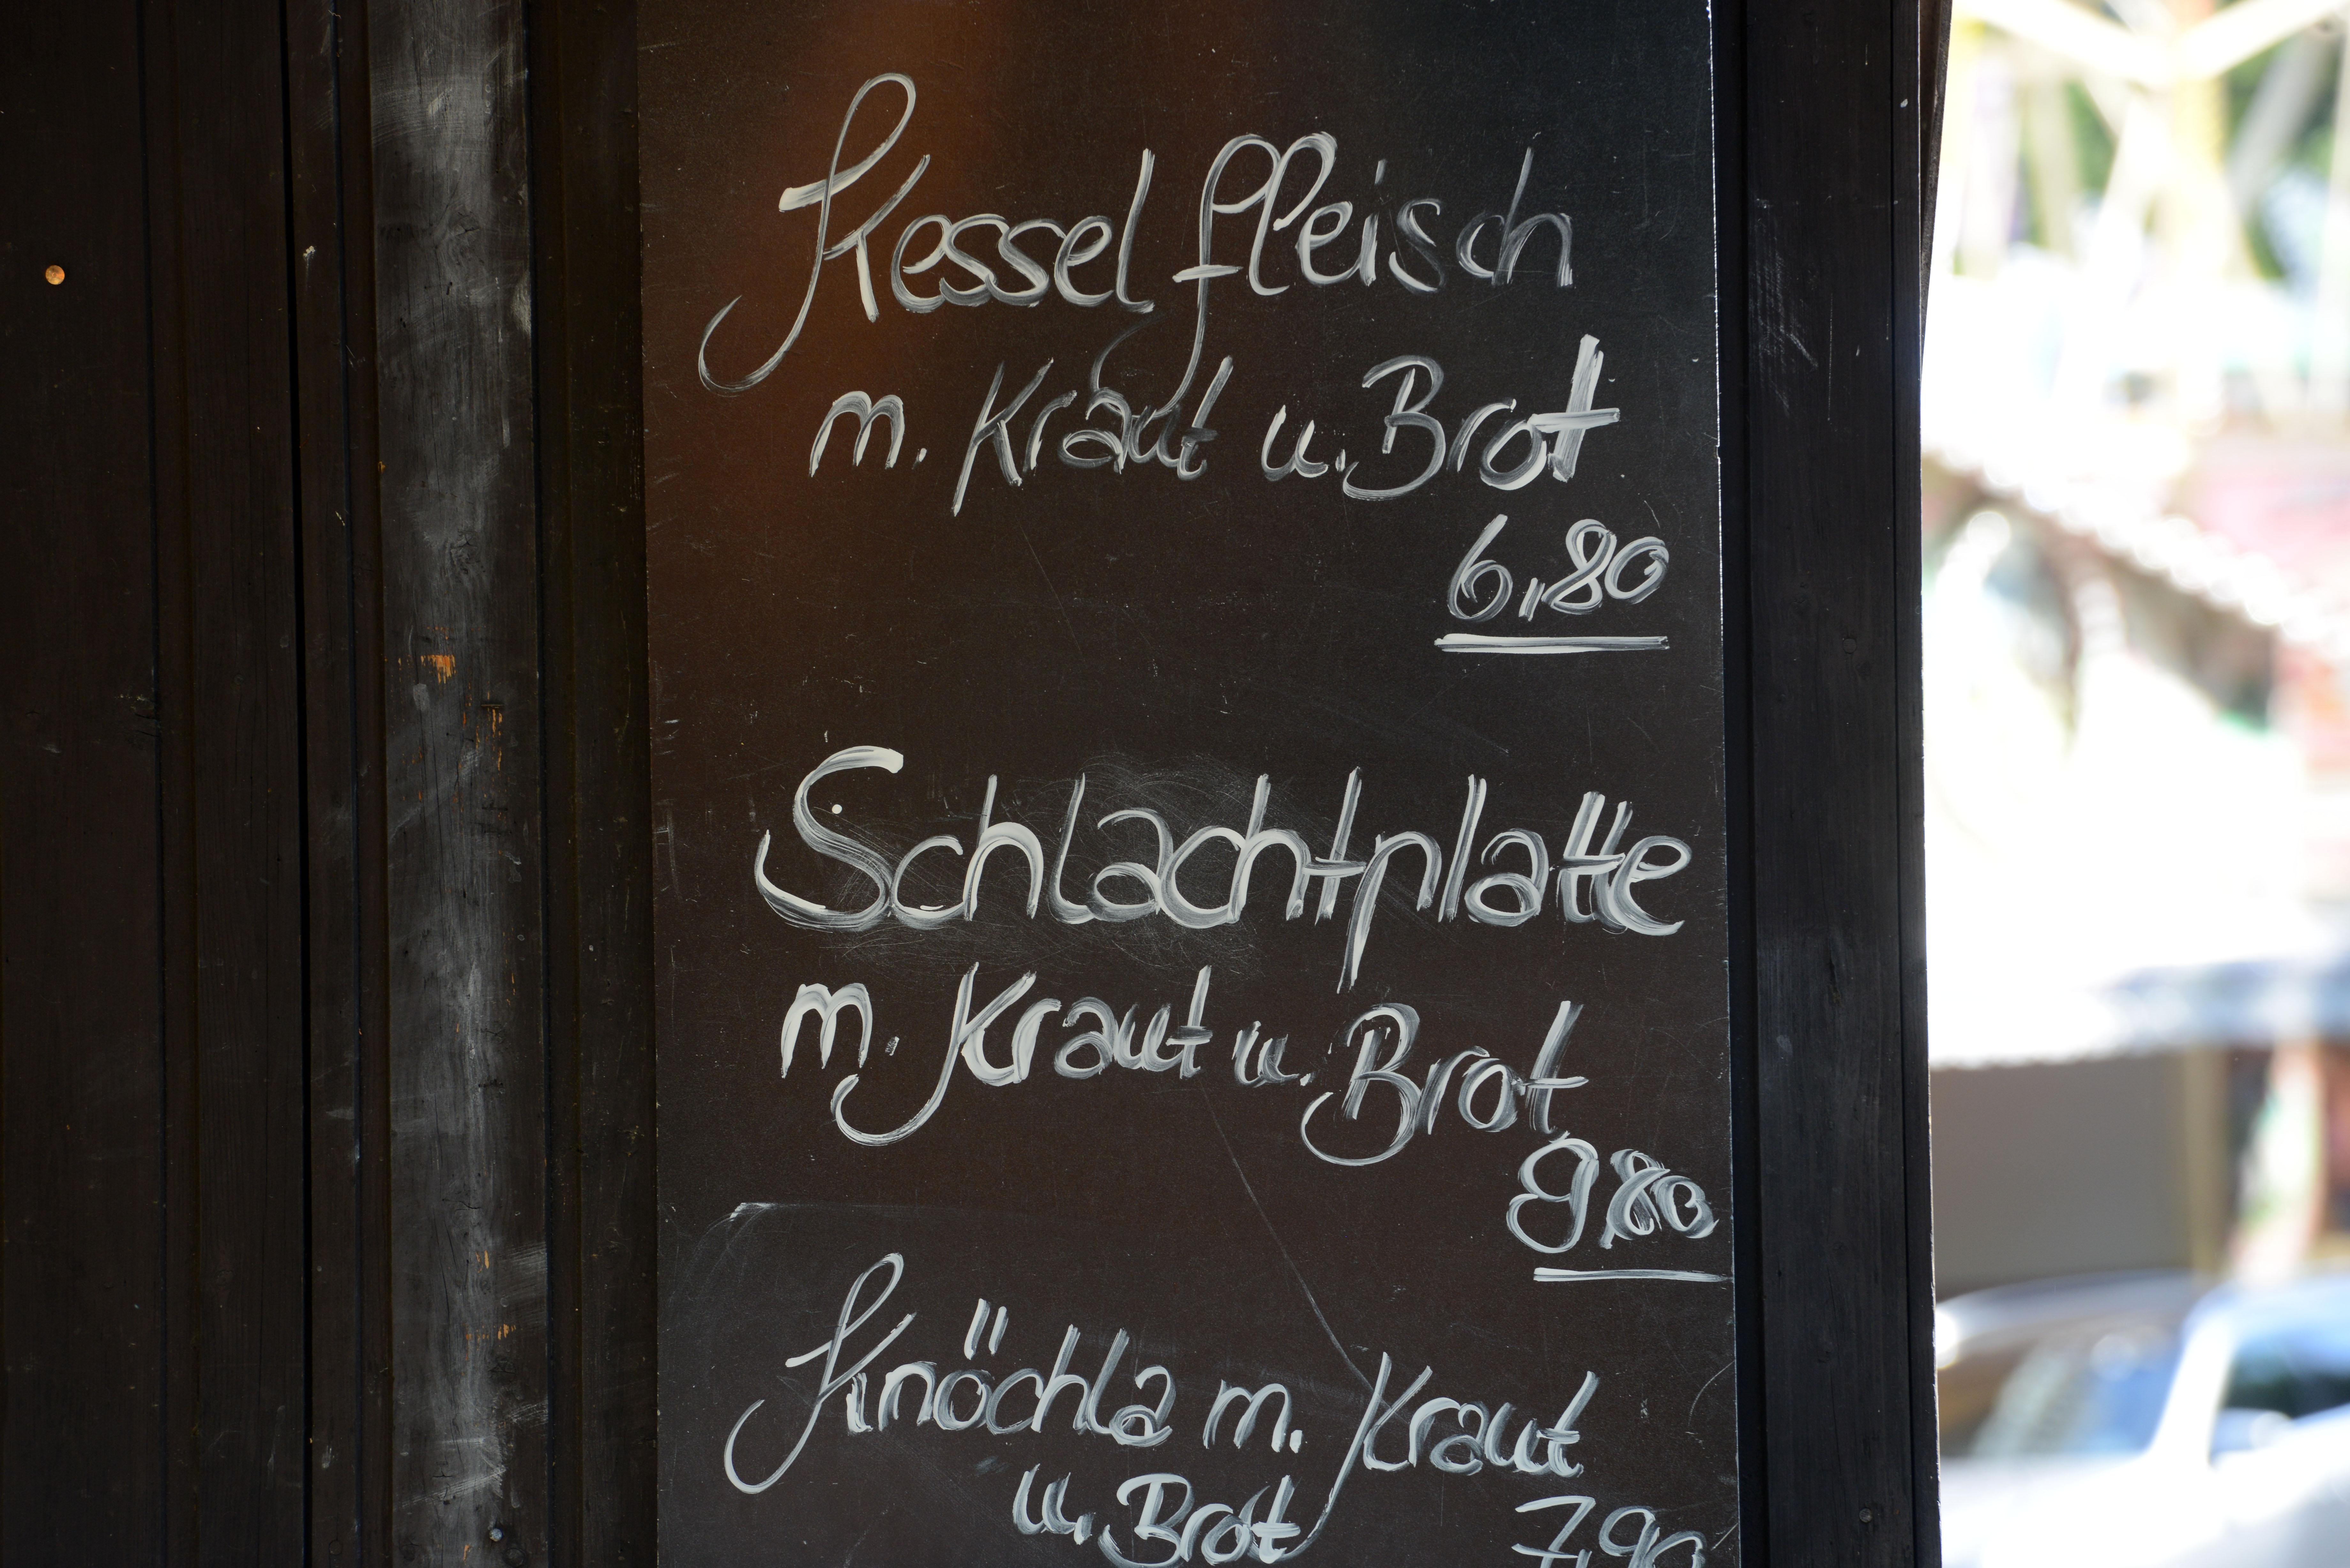 Kesselfleisch
m. Kraut u. Brot
6,80
Schlachtplatte
m. Kraut u. Brot
9,80
Knöchla m. Kraut
u. Brot 7,90